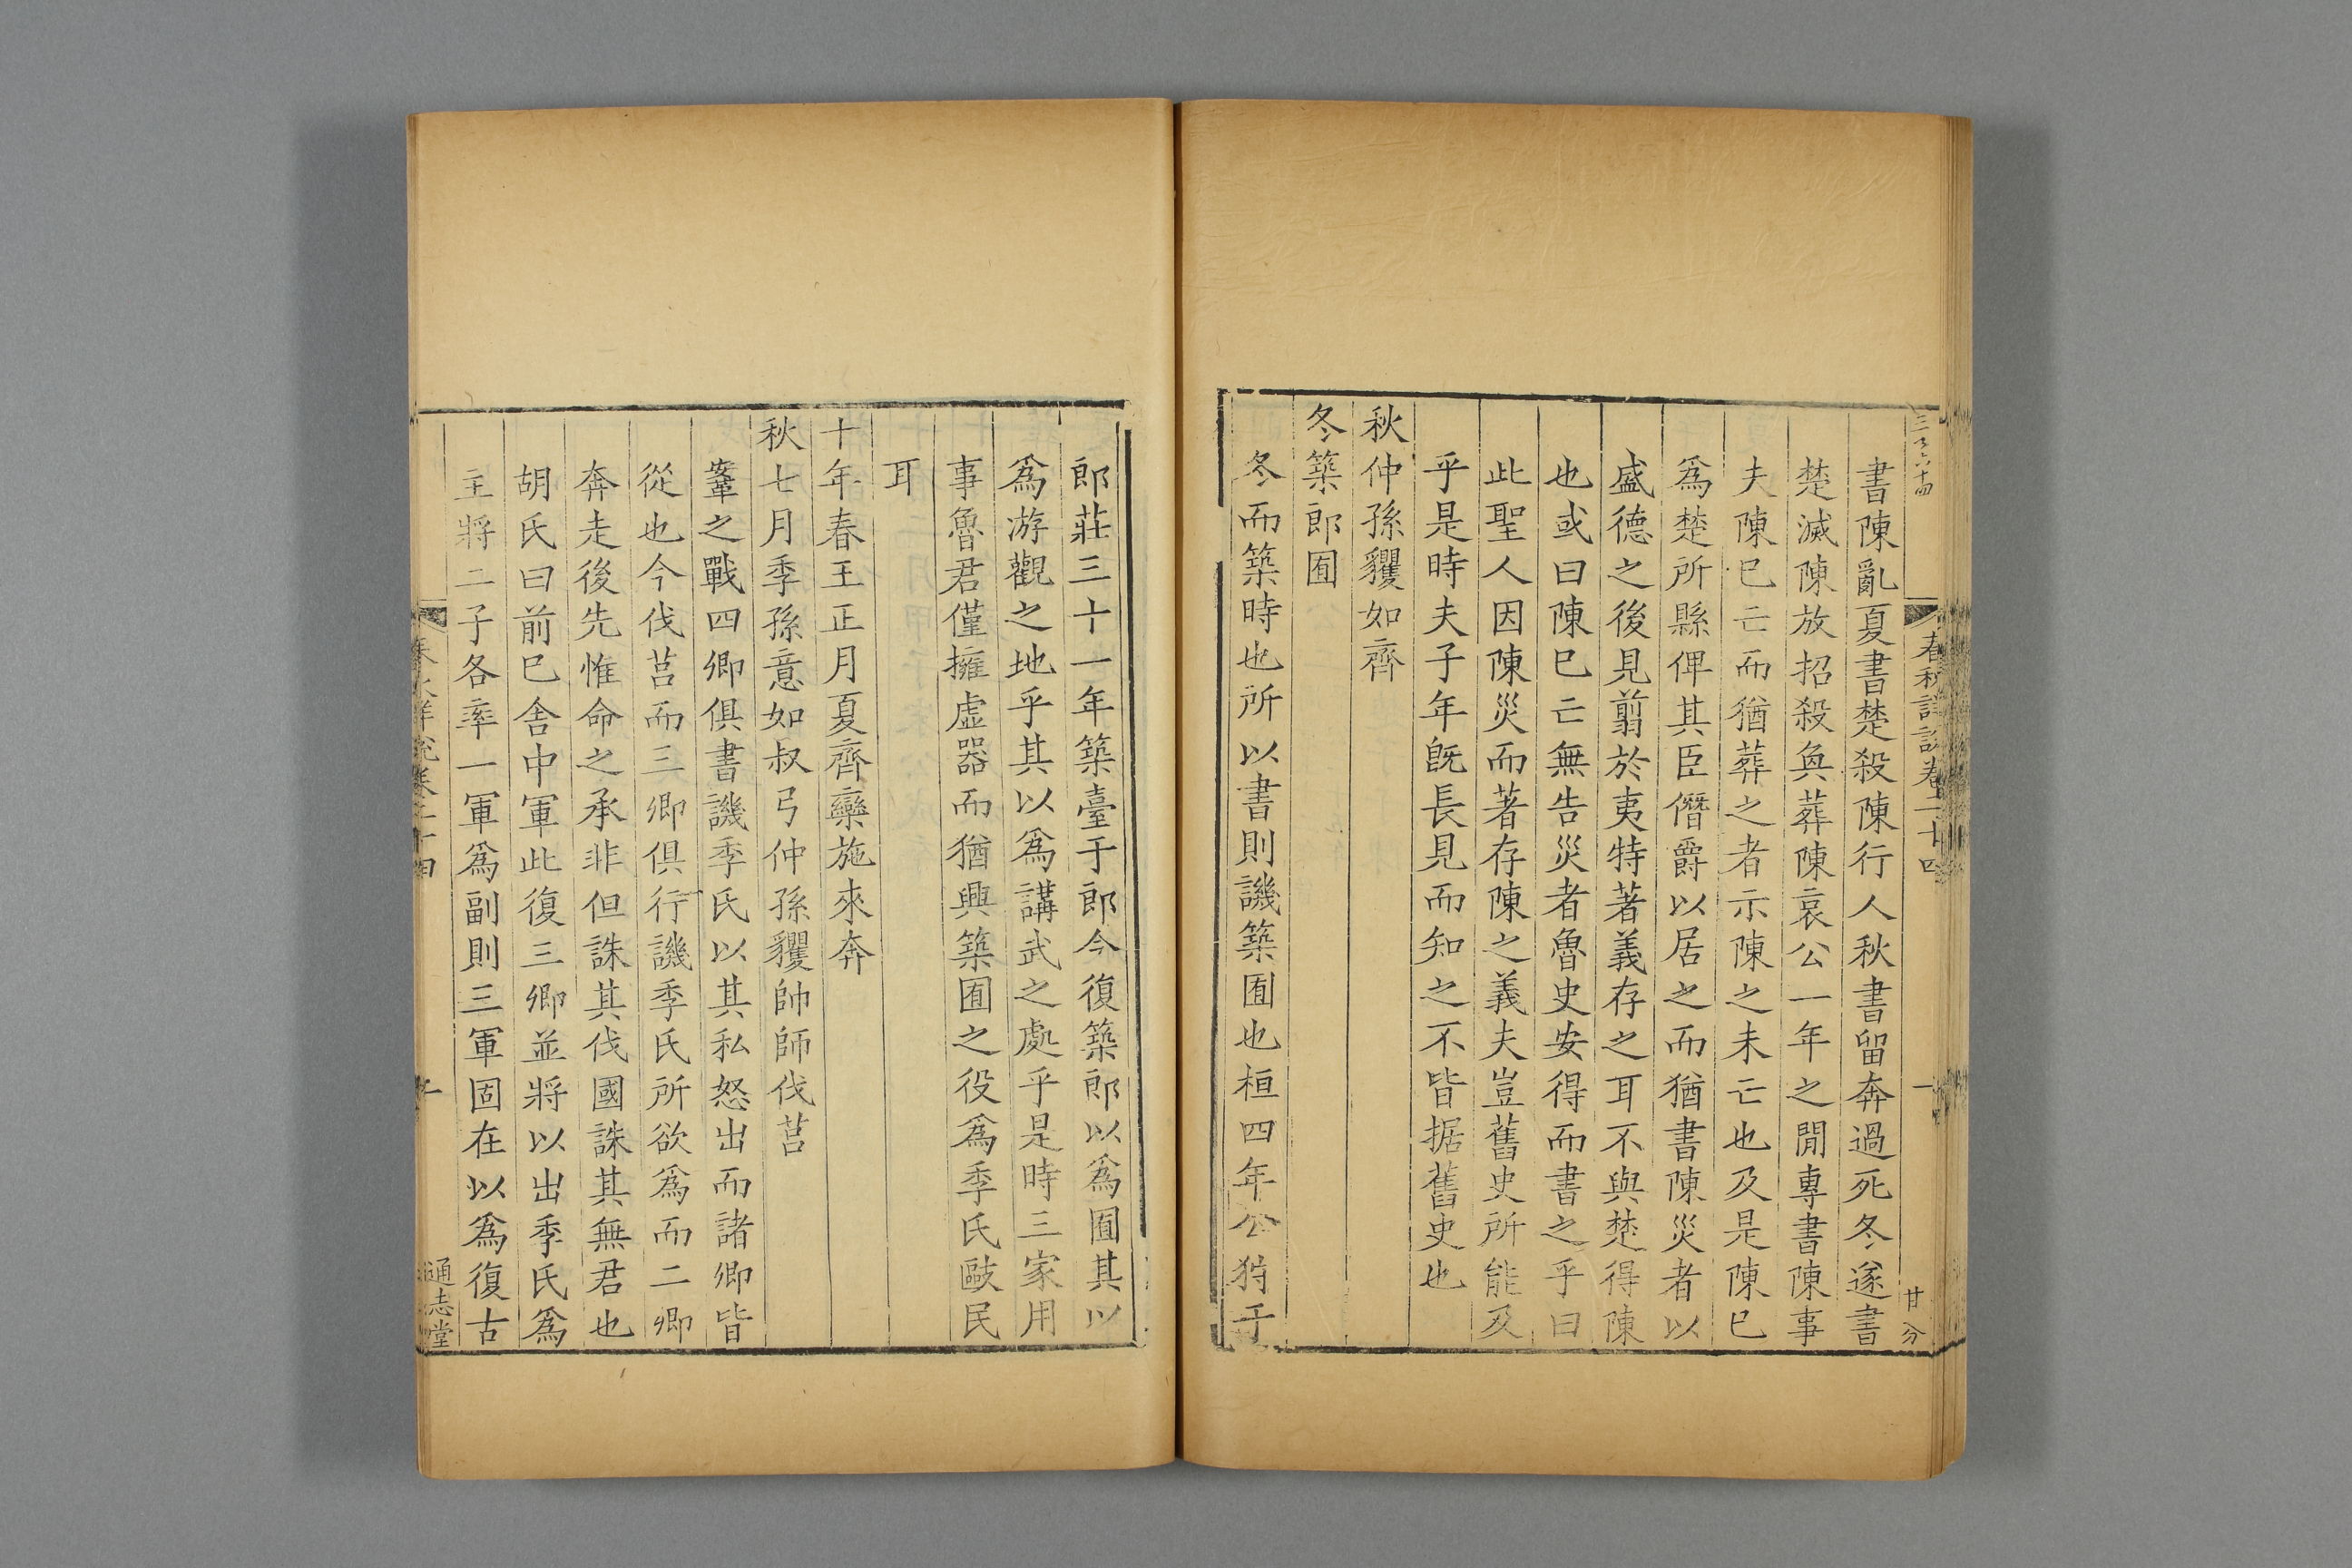 春秋詳說卷二十四
甘分
書陳亂夏書楚殺陳行人秋書留奔過死冬遂書
楚滅陳放招殺奐葬陳哀公一年之閒專書陳事
夫陳巳亡而猶葬之者示陳之未亡也及是陳巳
爲楚所縣俾其臣僭爵以居之而猶書陳災者以
盛德之後見翦於夷特著義存之耳不與楚得陳
也或曰陳巳亡無告災者魯史安得而書之乎曰
此聖人因陳災而著存陳之義夫豈舊史所能及
乎是時夫子年旣長見而知之不皆据舊史也
秋仲孫貜如齊
冬築郎囿
冬而築時也所以書則譏築囿也桓四年公狩于
郎莊三十一年築臺于郎今復築郎以爲囿其以
爲游觀之地乎其以爲講武之處乎是時三家用
事魯君僅擁虛器而猶興築囿之役爲季氏敺民
耳
十年春王正月夏齊欒施來奔
秋七月季孫意如叔弓仲孫貜帥師伐莒
鞌之戰四卿俱書譏季氏以其私怒出而諸卿皆
從也今伐莒而三卿俱行譏季氏所欲爲而二卿
奔走後先惟命之承非但誅其伐國誅其無君也
胡氏曰前巳舍中軍此復三卿並將以出季氏爲
主將二子各率一軍爲副則三軍固在以爲復古
通志堂